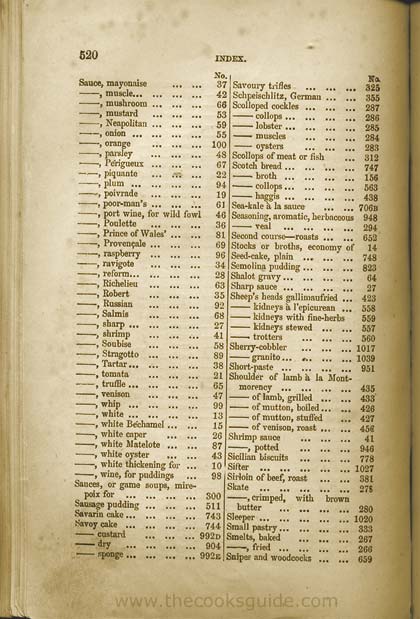 520
INDEX.
No.
Sauce, mayonaise ... ... 37
——, muscle... ... ... ... 42
——, mushroom ... ... ... 66
——, mustard ... ... ... 53
——, Neapolitan ... ... ... 59
——, onion ... ... ... ... 55
——, orange ... ... ... 100
——, parsley ... ... ... 48
——, Périgueux ... ... ... 67
——, piquante ... ... ... 22
——, plum ... ... ... ... 94
——, poivrade ... ... ... 19
——, poor-man's ... ... ... 61
——, port wine, for wild fowl 46
——, Poulette ... ... ... 36
——, Prince of Wales' ... ... 81
——, Provençale ... ... ... 69
——, raspberry ... ... ... 96
——, ravigote ... ... ... 34
——, reform... ... ... ... 28
——, Richelieu ... ... ... 63
——, Robert ... ... ... 35
——, Russian ... ... ... 92
——, Salmis ... ... ... 68
——, sharp ... ... ... ... 27
——, shrimp ... ... ... 41
——, Soubise ... ... ... 58
——, Stragotto ... ... ... 89
——, Tartar... ... ... ... 38
——, tomata ... ... ... 21
——, truffle ... ... ... ... 65
——, venison ... ... ... 47
——, whip ... ... ... ... 99
——, white ... ... ... ... 13
——, white Béchamel ... ... 15
——, white caper ... ... 26
——, white Matelote ... ... 87
——, white oyster ... ... 43
——, white thickening for ... 10
——, wine, for puddings ... 98
Sauces, or game soups, mire-
poix for ... ... ... ... 300
Sausage pudding ... ... ... 511
Savarin cake ... ... ... ... 743
Savoy cake ... ... ... ... 744
—— custard ... ... ... 992D
—— dry ... ... ... ... 904
—— sponge ... ... ... ... 992E
No.
Savoury trifles ... ... ... ... 325
Schpeischlitz, German ... ... 355
Scolloped cockles ... ... ... 287
—— collops ... ... ... ... 286
—— lobster ... ... ... ... 285
—— muscles ... ... ... 284
—— oysters ... ... ... 283
Scollops of meat or fish 312
Scotch bread ... ... ... ... 747
—— broth ... ... ... ... 156
—— collops ... ... ... ... 563
—— haggis ... ... ... ... 438
Sea-kale à la sauce ... ... 706B
Seasoning, aromatic, herbaceous 948
—— veal ... ... ... ... 294
Second course—roasts ... ... 652
Stocks or broths, economy of 14
Seed-cake, plain ... ... ... 748
Semolina pudding ... ... ... 823
Shalot gravy ... ... ... ... 64
Sharp sauce ... ... ... ... 27
Sheep's heads gallimaufried ... 423
—— kidneys à l'epicurean ... 558
—— kidneys with fine-herbs 559
—— kidneys stewed ... ... 557
——, trotters ... ... ... 560
Sherry-cobbler ... ... ... 1017
—— granito ... ... ... ... 1039
Short-paste ... ... ... ... 951
Shoulder of lamb à la Mont-
morency ... ... ... ... 435
—— of lamb, grilled ... ... 433
—— of mutton, boiled ... ... 426
—— of mutton, stuffed ... 427
—— of venison, roast ... ... 456
Shrimp sauce ... ... ... 41
——, potted ... ... ... 946
Sicilian biscuits ... ... ... 778
Sifter ... ... ... ... ... 1027
Sirloin of beef, roast ... ... 381
Skate ... ... ... ... ... 278
——, crimped, with brown
butter ... ... ... ... 280
Sleeper ... ... ... ... ... 1020
Small pastry ... ... ... ... 333
Smelts, baked ... ... ... 267
——, fried ... ... ... ... 266
Snipes and woodcocks ... ... 659
www.thecooksguide.com